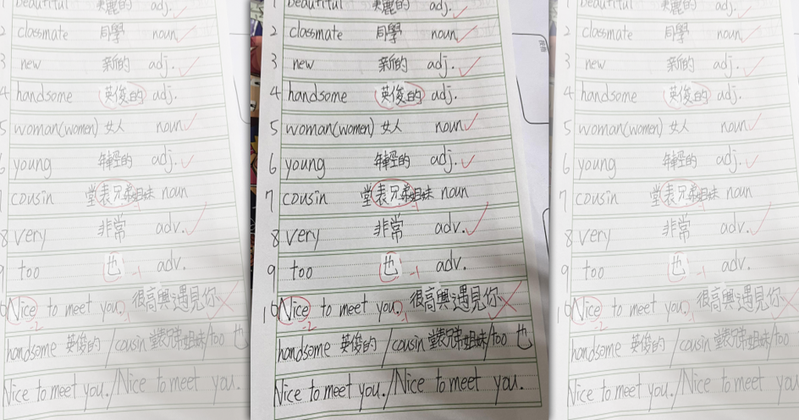 1 beautiful 美麗的 adj.
2 classmate 同學 noun
3 new 新的 adj.
4 handsome 英俊的 adj.
5 woman(women) 女人 noun
6 young 年輕的 adj.
7 cousin 堂表兄弟姐妹 noun
8 very 非常 adv.
9 too 也 -1 adv.
10 Nice to meet you. 很高興遇見你
-2
handsome 英俊的 /cousin 堂表兄弟姐妹/too 也
Nice to meet you./Nice to meet you.